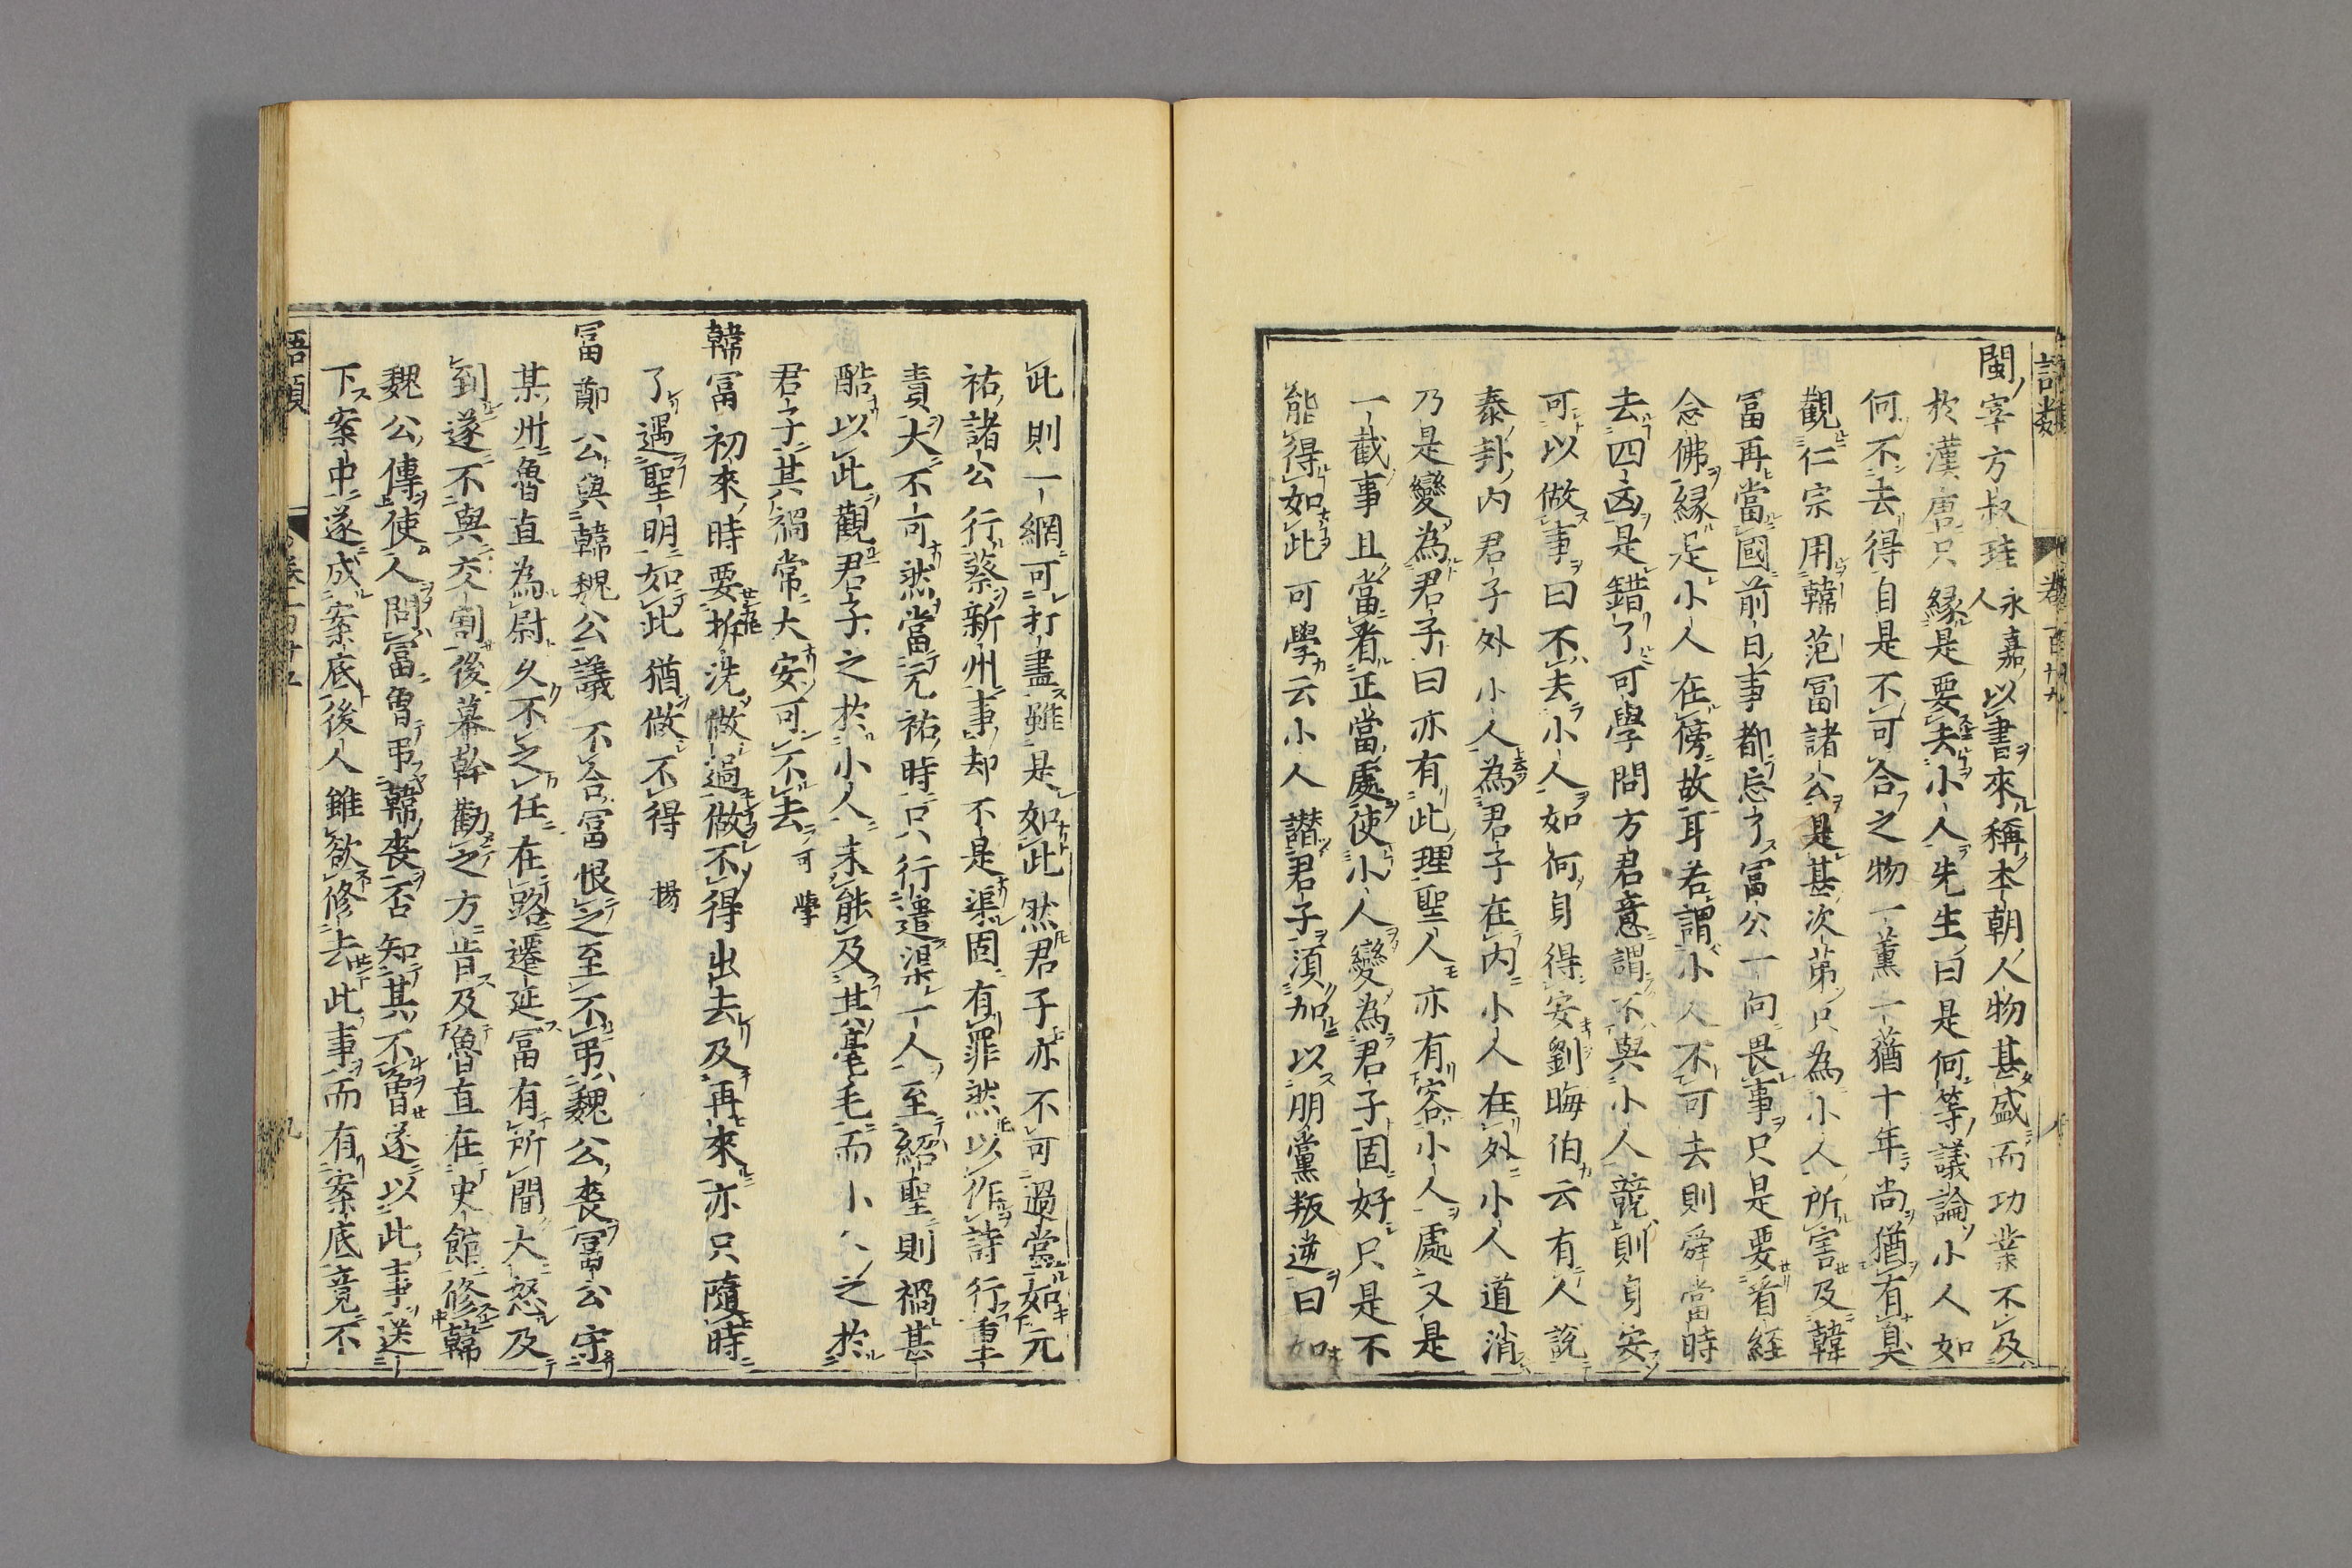 語類
卷一百廿九
閩宰方叔珪永嘉人以書來稱本朝人物甚盛而功業不及
於漢唐只緣是要去小人先生曰是何等議論小人如
何不去得自是不可合之物一薰一蕕十年尚猶有臭
觀仁宗用韓范冨諸公是甚次第只為小人所害及韓
冨再當國前日事都忘了冨公一向畏事只是要看経
念佛緣是小人在傍故耳若謂小人不可去則舜當時
去四凶是錯了可學問方君意謂不與小人競則身安
可以做事曰不去小人如何身得安劉晦伯云有人說
泰卦内君子外小人為君子在内小人在外小人道消
乃是變為君子曰亦有此理聖人亦有容小人處又是
一截事且當看正當處使小人變為君子固好只是不
能得如此可學云小人譖君子須加以朋黨叛逆曰如
此則一網可打盡雖是如此然君子亦不可過當如元
祐諸公行蔡新州事却不是渠固有罪然以作詩行重
責大不可然當元祐時只行遣渠一人至紹聖則禍甚
酷以此觀君子之於小人未能及其毫毛而小人之於
君子其禍常大安可不去可學
韓冨初來時要拆洗做過做不得出去及再來亦只隨時
了遇聖明如此猶做不得揚
冨鄭公與韓魏公議不合冨恨之至不弔魏公喪冨公守
某州魯直為尉久不之任在路遷延冨有所聞大怒及
到遂不與交割後幕幹勸之方肯及魯直在史館修韓
魏公傳使人問冨曾弔韓喪否知其不曾遂以此事送
下案中遂成案底後人雖欲修去此事而有案底竟不
語類
九